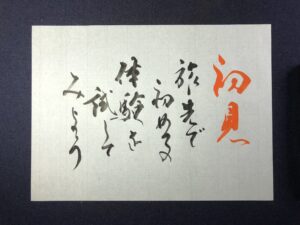 初見
旅先で
初めての
体験を
試して
みよう